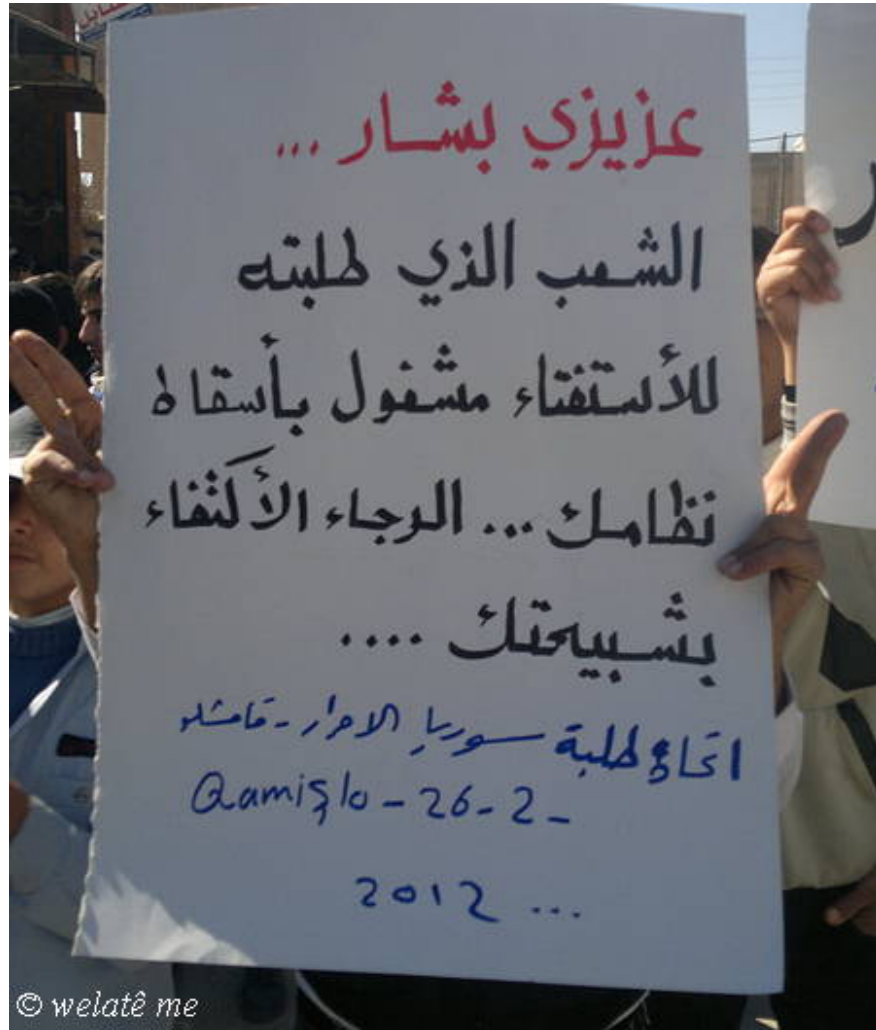 عزيزي بشار ...
الشعب الذي طلبته
للأستفتاء مشغول بأسقاط
نظامك ... الرجاء الأكتفاء
بشبيحتك ....
اتحاد طلبة سوريا الاحرار - قامشلو
Qamişlo - 26 - 2 -
2012 ...
© welatê me